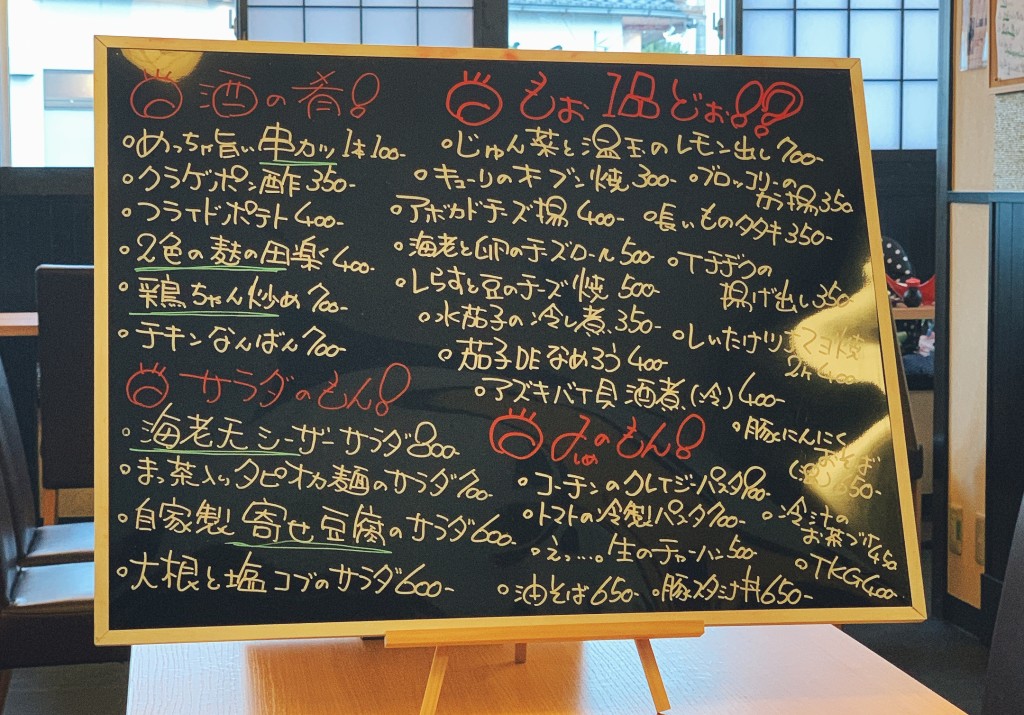 酒の肴!
・めっちゃ旨い串カツ1本100-
・クラゲポン酢350-
・フライドポテト400-
・2色の麩の田楽400-
・鶏ちゃん炒め700-
・チキンなんばん700-
サラダのもん!
・海老天シーザーサラダ800-
・まっ茶入りタピオカ麺のサラダ700-
・自家製寄せ豆腐のサラダ600-
・大根と塩コブのサラダ600-
もぉ1品どぉ!?
・じゅん菜と温玉のレモン出し700-
・キューリのオーブン焼300-
・アボカドチーズ揚400-
・海老と卵のチーズロール500-
・しらすと豆のチーズ焼500-
・水茄子の冷し煮350-
・茄子DEなめろう400-
・アズキバイ貝酒煮(冷)400-
・ブロッコリーの
から揚350
・長いものタタキ350-
揚げ出し350-
・しいたけツナマヨ焼
2ケ400-
〆のもん!
しめ
・コーチンのクレイジーパスタ900-
・トマトの冷製パスタ700-
・えっ…。生のチャーハン500-
・油そば650-
・豚スタミナ丼650-
・豚とにんにく
650-
・冷汁の
お茶づけ450
・TKG400-